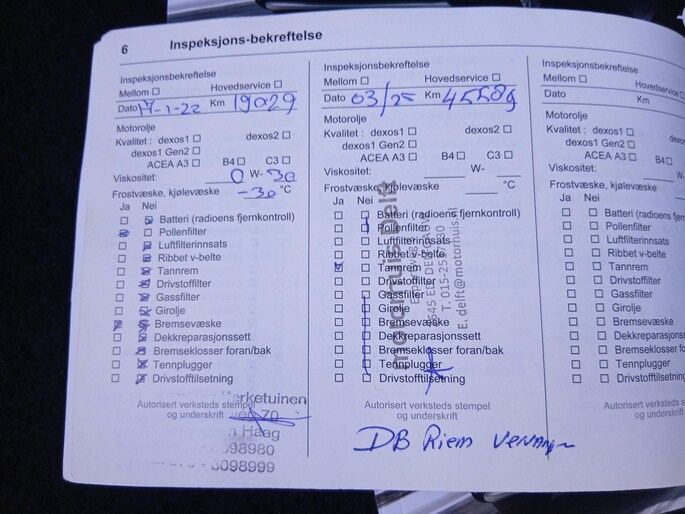 6 Inspeksjons-bekreftelse
Inspeksjonsbekreftelse
Mellom Hovedservice
Dato 17-1-22 Km 19029
Motorolje
Kvalitet : dexos1 dexos2
dexos1 Gen2
ACEA A3 B4 C3
Viskositet: 0 W- 30
Frostvæske, kjølevæske -30 °C
Ja Nei
Batteri (radioens fjernkontroll)
Pollenfilter
Luftfilterinnsats
Ribbet v-belte
Tannrem
Drivstoffilter
Gassfilter
Girolje
Bremsevæske
Dekkreparasjonssett
Bremseklosser foran/bak
Tennplugger
Drivstofftilsetning
Autorisert verksteds stempel
og underskrift
erketuinen
Haag
098980
6098999
Inspeksjonsbekreftelse
Mellom Hovedservice
Dato 03/25 Km
Motorolje
Kvalitet : dexos1 dexos2
dexos1 Gen2
ACEA A3 B4 C3
Viskositet: W-
Frostvæske, kjølevæske °C
Ja Nei
Batteri (radioens fjernkontroll)
Pollenfilter
Luftfilterinnsats
Ribbet v-belte
Tannrem
Drivstoffilter
Gassfilter
Girolje
Bremsevæske
Dekkreparasjonssett
Bremseklosser foran/bak
Tennplugger
Drivstofftilsetning
motorhuis Delft
E. delft@motorhuis.nl
Autorisert verksteds stempel
og underskrift
DB Riem
Inspeksjonsbekreftelse
Mellom Hovedservice
Dato Km
Motorolje
Kvalitet : dexos1
dexos1 Gen2
ACEA A3 B4
Viskositet:
Frostvæske, kjølevæske
Ja Nei
Batteri (radioens fjern
Pollenfilter
Luftfilterinnsats
Ribbet v-belte
Tannrem
Drivstoffilter
Gassfilter
Girolje
Bremsevæske
Dekkreparasjonssett
Bremseklosser foran/
Tennplugger
Drivstofftilsetning
Autorisert verksteds s
og underskrift